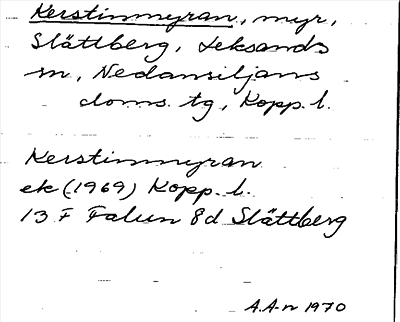 Kerstinmyran, myr,
Slättberg, Leksands
sn, Nedansiljans
doms. tg, Kopp. l.
Kerstinmyran
ek (1969) Kopp. l.
13 F Falun 8d Slättberg
A.A-n 1970